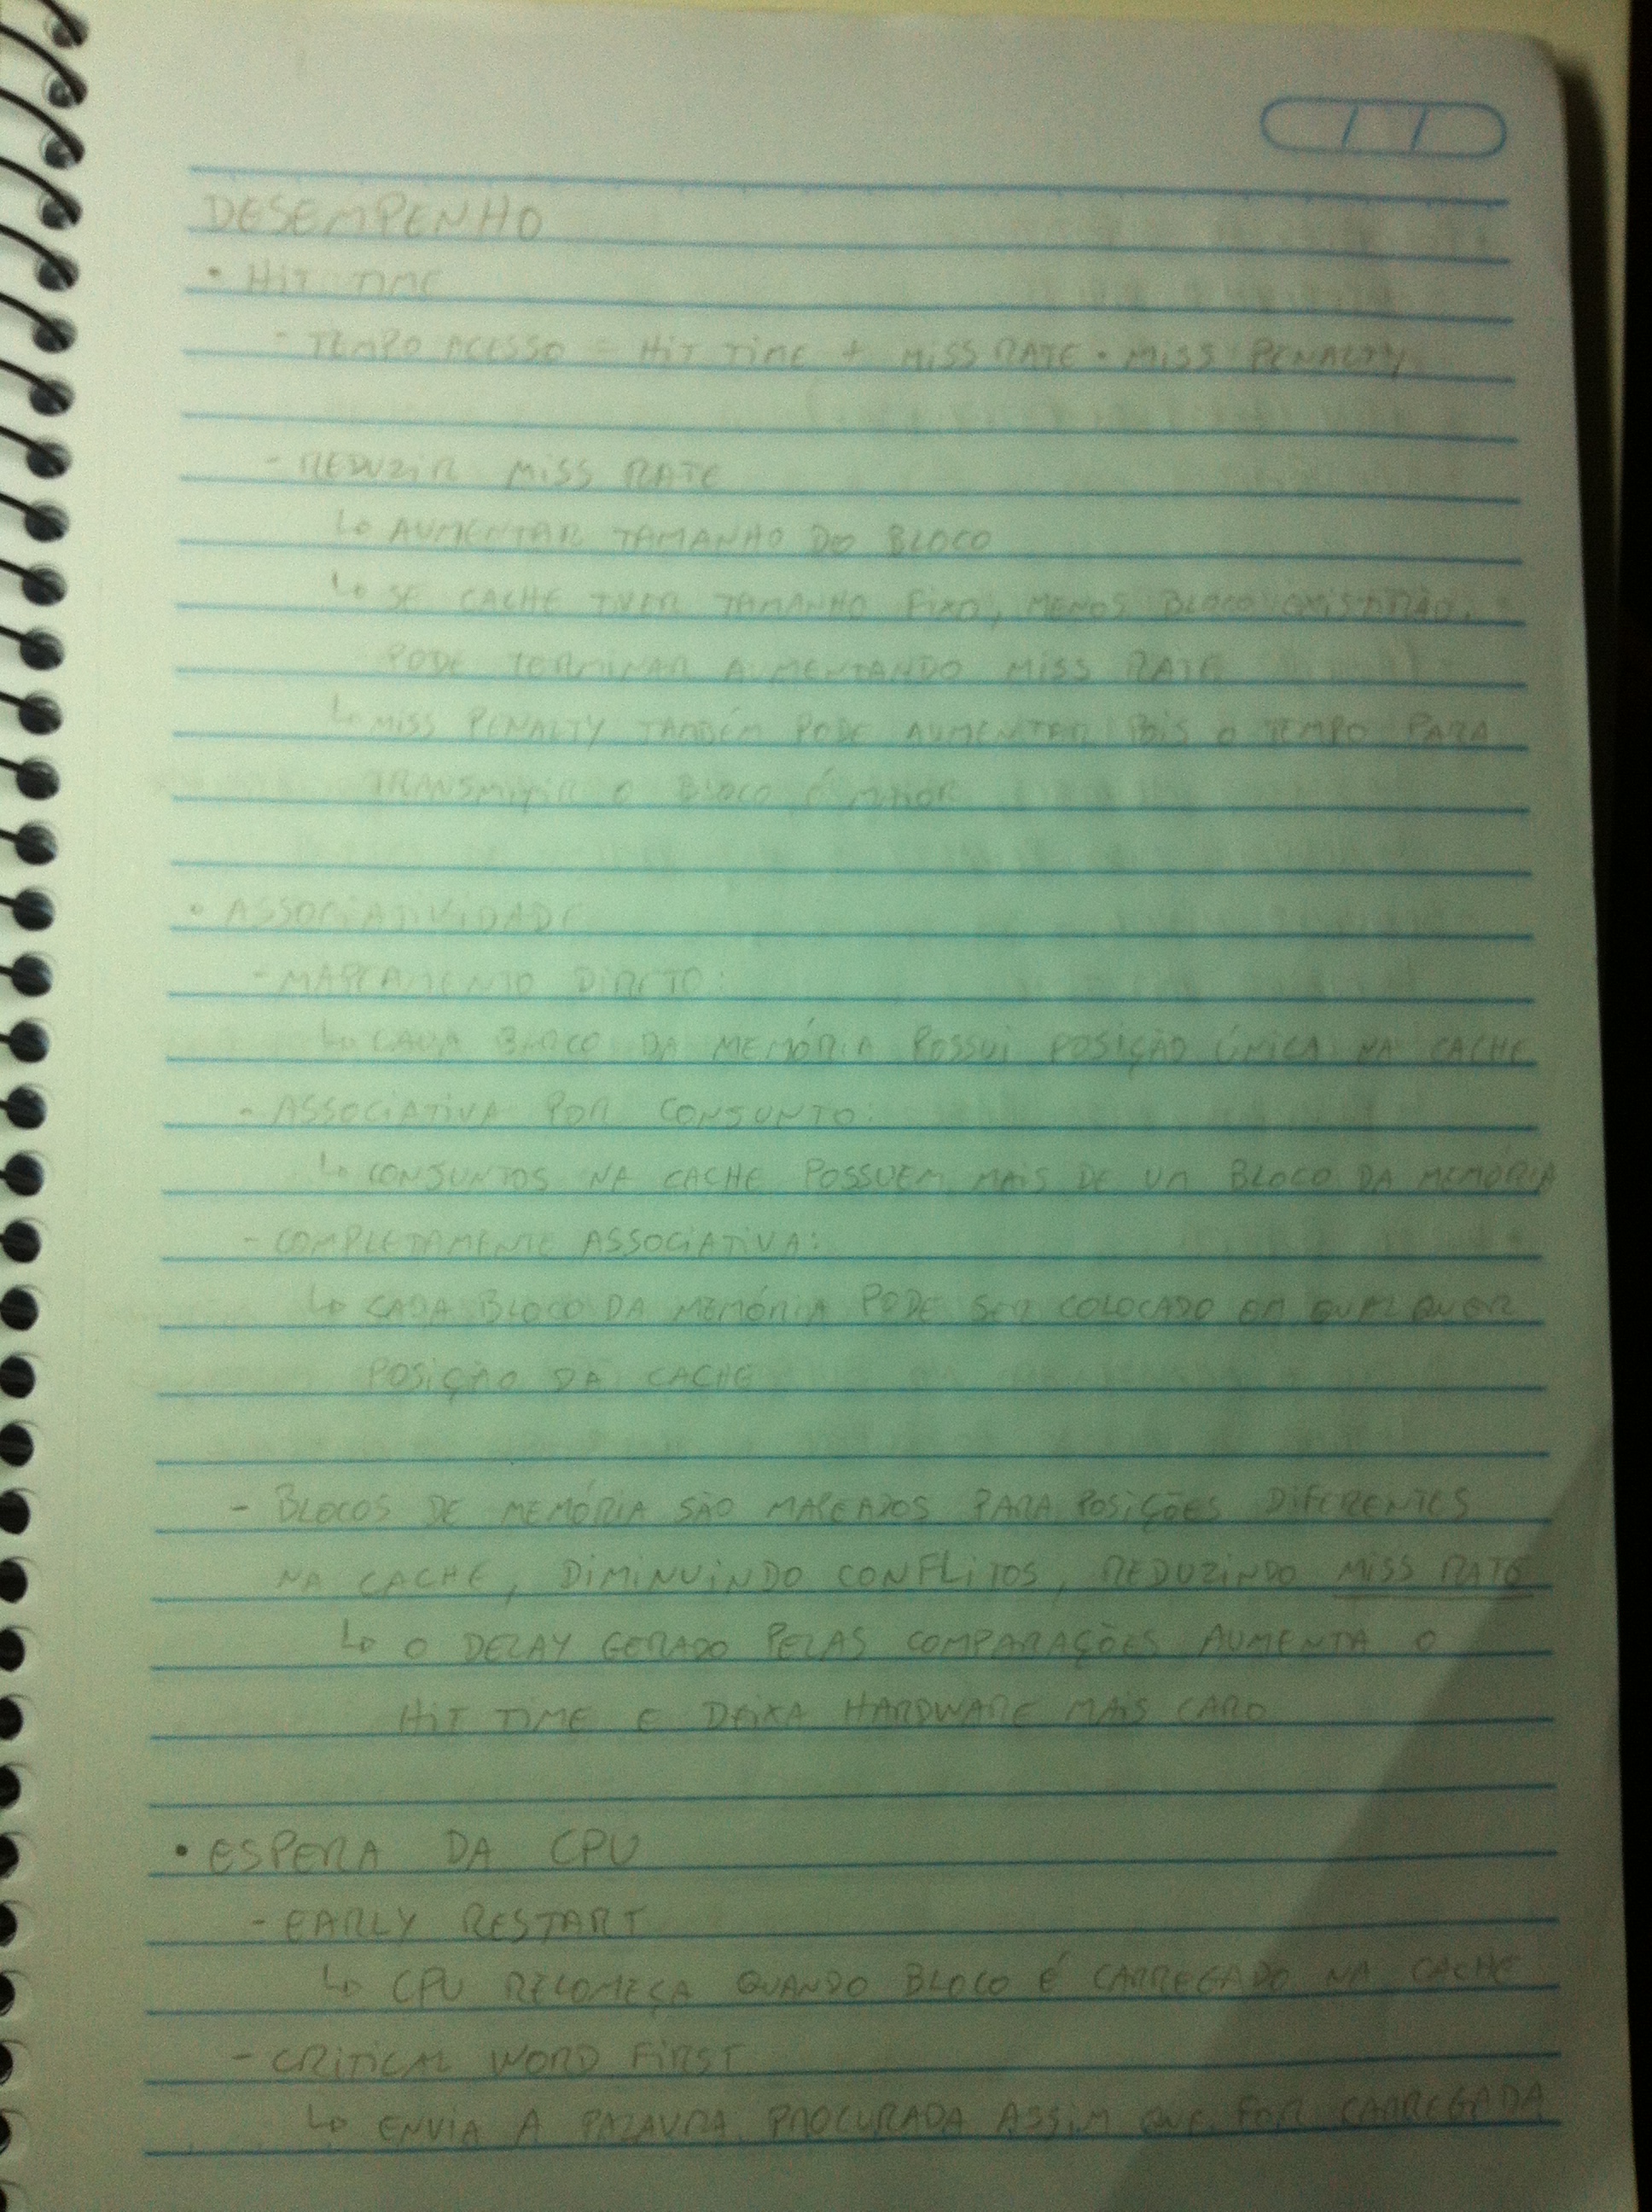 DESEMPENHO
• HIT TIME
- TEMPO ACESSO = HIT TIME + MISS RATE • MISS PENALTY
- REDUZIR MISS RATE
↳ AUMENTAR TAMANHO DO BLOCO
↳ SE CACHE TIVER TAMANHO FIXO, MENOS BLOCO EXISTIRÃO.
PODE TERMINAR AUMENTANDO MISS RATE
↳ MISS PENALTY TAMBÉM PODE AUMENTAR POIS O TEMPO PARA
TRANSMITIR O BLOCO É MAIOR
• ASSOCIATIVIDADE
- MAPEAMENTO DIRETO:
↳ CADA BLOCO DA MEMÓRIA POSSUI POSIÇÃO ÚNICA NA CACHE
- ASSOCIATIVA POR CONJUNTO:
↳ CONJUNTOS NA CACHE POSSUEM MAIS DE UM BLOCO DA MEMÓRIA
- COMPLETAMENTE ASSOCIATIVA:
↳ CADA BLOCO DA MEMÓRIA PODE SER COLOCADO EM QUALQUER
POSIÇÃO DA CACHE
- BLOCOS DE MEMÓRIA SÃO MAPEADOS PARA POSIÇÕES DIFERENTES
NA CACHE, DIMINUINDO CONFLITOS, REDUZINDO MISS RATE
↳ O DELAY GERADO PELAS COMPARAÇÕES AUMENTA O
HIT TIME E DEIXA HARDWARE MAIS CARO
• ESPERA DA CPU
- EARLY RESTART
↳ CPU RECOMEÇA QUANDO BLOCO É CARREGADO NA CACHE
- CRITICAL WORD FIRST
↳ ENVIA A PALAVRA PROCURADA ASSIM QUE FOR CARREGADA